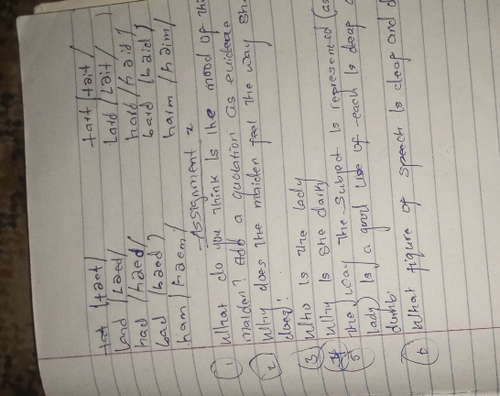 tat /taet/ tart /tait/
land /Laed/ Lard /Laid/
had /haed/ hard /haid/
bad /baed/ bard /baid/
ham /haem/ harm /haim/
Assignment
1 What do you think is the mood of thi
maiden? Add a quotation as evidence
2 Why does the maiden feel the way she
does?
3 Who is the lady
4 Why is she daily
5 the way the subject is represented (as
lady) is a good use of each is deaf
dumb.
6 What figure of speech is deaf and d